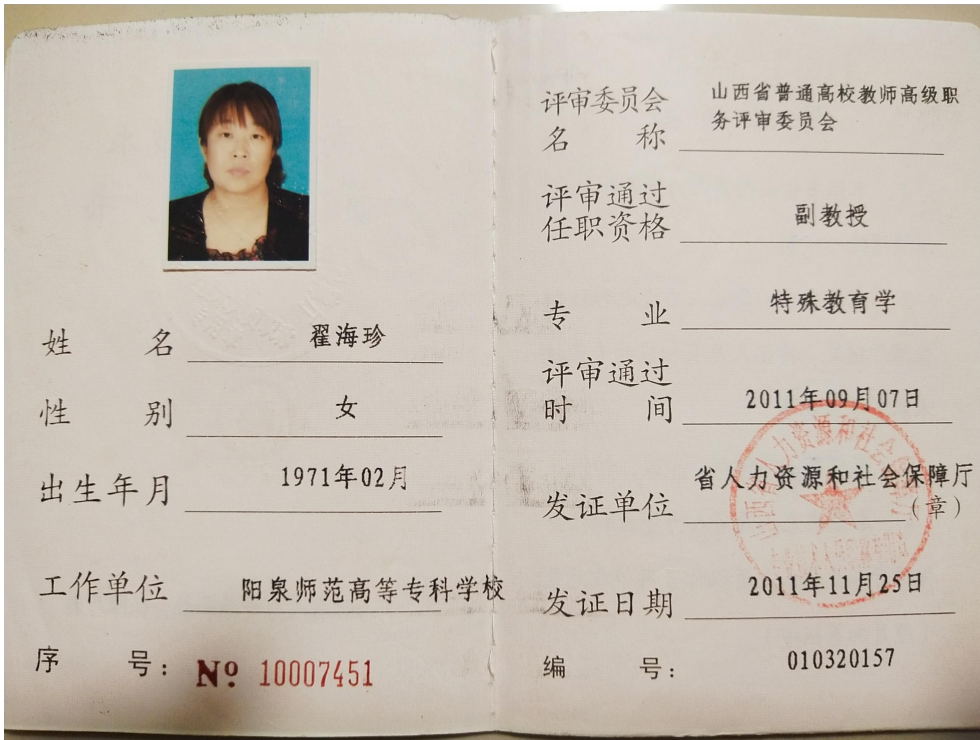 姓 名 翟海珍
性 别 女
出生年月 1971年02月
工作单位 阳泉师范高等专科学校
序 号: № 10007451
评审委员会
名 称
山西省普通高校教师高级职
务评审委员会
评审通过
任职资格
副教授
专 业 特殊教育学
评审通过
时 间
2011年09月07日
发证单位 省人力资源和社会保障厅
(章)
山西省人力资源和社会保障厅
发证日期 2011年11月25日
编 号: 010320157